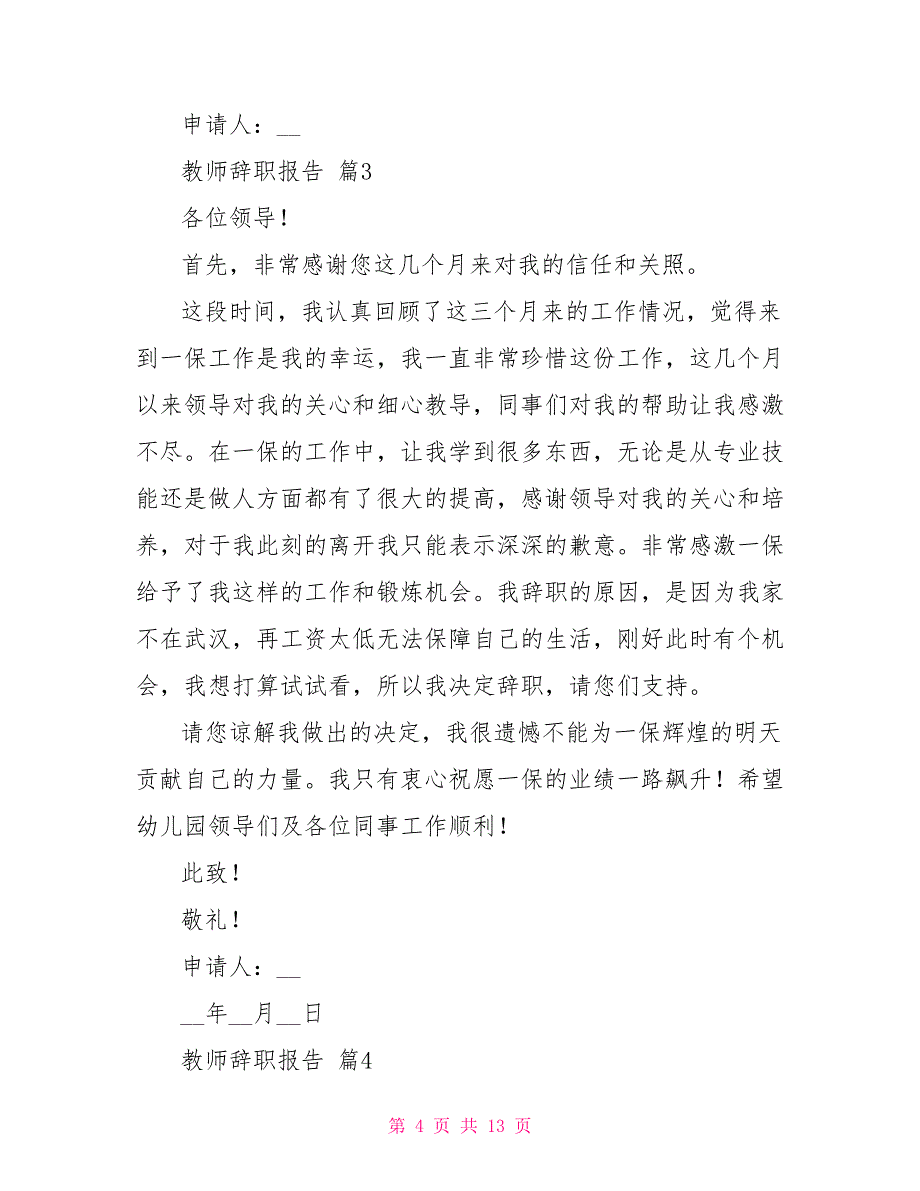 申请人：__
教师辞职报告 篇3
各位领导！
首先，非常感谢您这几个月来对我的信任和关照。
这段时间，我认真回顾了这三个月来的工作情况，觉得来
到一保工作是我的幸运，我一直非常珍惜这份工作，这几个月
以来领导对我的关心和细心教导，同事们对我的帮助让我感激
不尽。在一保的工作中，让我学到很多东西，无论是从专业技
能还是做人方面都有了很大的提高，感谢领导对我的关心和培
养，对于我此刻的离开我只能表示深深的歉意。非常感激一保
给予了我这样的工作和锻炼机会。我辞职的原因，是因为我家
不在武汉，再工资太低无法保障自己的生活，刚好此时有个机
会，我想打算试试看，所以我决定辞职，请您们支持。
请您谅解我做出的决定，我很遗憾不能为一保辉煌的明天
贡献自己的力量。我只有衷心祝愿一保的业绩一路飙升！希望
幼儿园领导们及各位同事工作顺利！
此致！
敬礼！
申请人：__
__年__月__日
教师辞职报告 篇4
第 4 页 共 13 页